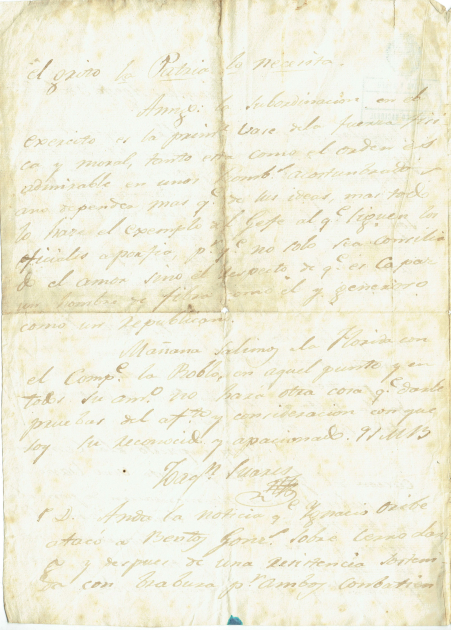 el grito la Patria lo necesita.
Amigo: la subordinacion en el
exercito es la prim.ª vase de la fuerza fisi
ca y moral, tanto esta como el orden es
admirable en unos homb.s acostumbrados
a no depender mas q.e de sus ideas, mas todo
lo hace el exemplo del Gefe al q.e siguen los
oficiales a porfia, p.r q.e no solo se a consilia
do el amor sino el respecto de q.e es capaz
un hombre de y generoso
como un republicano
Mañana salimos a la Florida con
el Comp.e la Robla, en aquel punto y en
todos su am.o no hará otra cosa q.e darle
pruebas del af.to y consideracion con que
soy su reconocido y apacionado.
Suares
P. D. Anda la noticia q.e Ygnacio Oribe
ataco a Bentos Gonz.s sobre Cerro Lar
g.o y despues de una resistencia sosteni
da con brabura p.r ambos combatien